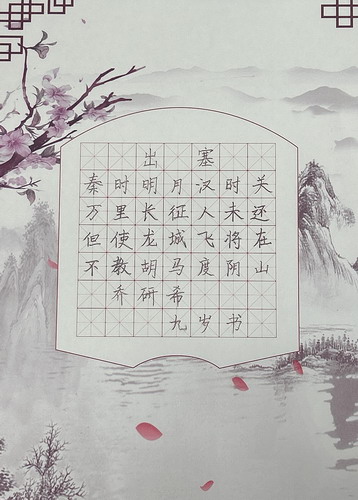 出塞
秦时明月汉时关
万里长征人未还
但使龙城飞将在
不教胡马度阴山
乔研希
九岁书